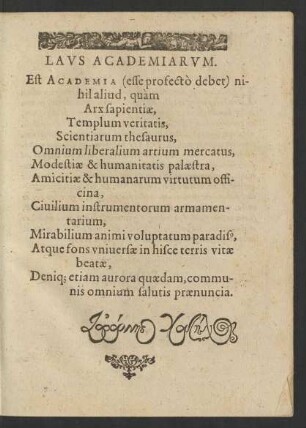 LAVS ACADEMIARVM.
Est ACADEMIA (esse profectò debet) ni-
hil aliud, quàm
Arx sapientiæ,
Templum veritatis,
Scientiarum thesaurus,
Omnium liberalium artium mercatus,
Modestiæ & humanitatis palæstra,
Amicitiæ & humanarum virtutum offi-
cina,
Ciuilium instrumentorum armamen-
tarium,
Mirabilium animi voluptatum paradisꝰ,
Atque fons vniuersæ in hisce terris vitæ
beatæ,
Deniq; etiam aurora quædam, commu-
nis omnium salutis prænuncia.